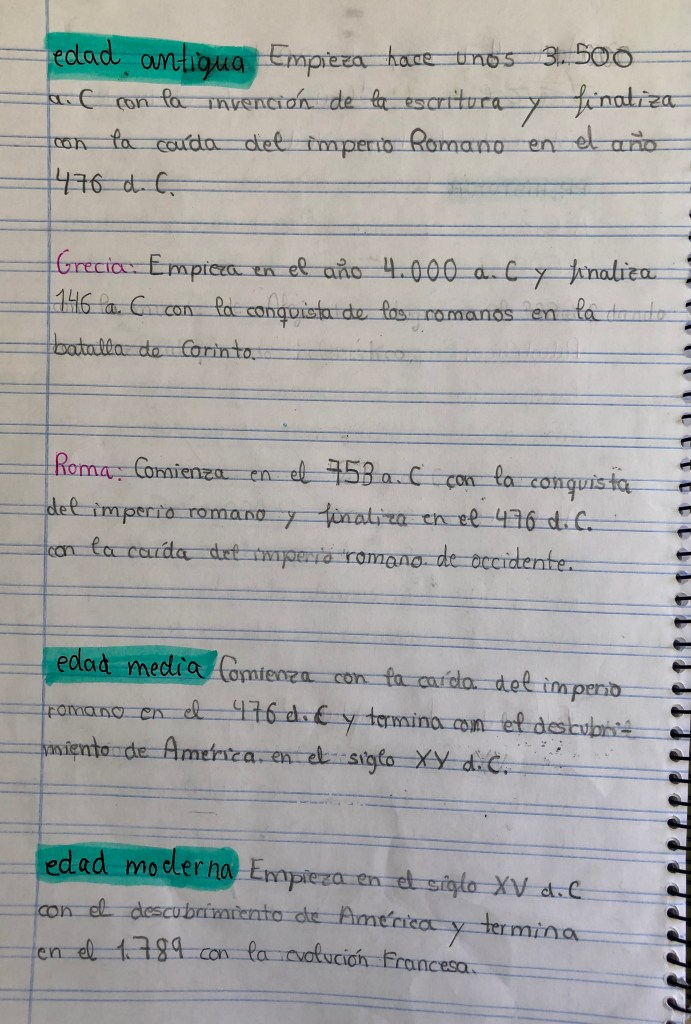 edad antigua Empieza hace unos 3.500
a.C con la invención de la escritura y finaliza
con la caída del imperio Romano en el año
476 d.C.
Grecia: Empieza en el año 4.000 a.C y finaliza
146 a.C con la conquista de los romanos en la
batalla de Corinto.
Roma: Comienza en el 753 a.C con la conquista
del imperio romano y finaliza en el 476 d.C.
con la caída del imperio romano de occidente.
edad media Comienza con la caída del imperio
romano en el 476 d.C y termina com el descubri-
miento de América en el siglo XV d.C.
edad moderna Empieza en el siglo XV d.C
con el descubrimiento de América y termina
en el 1.789 con la evolución Francesa.